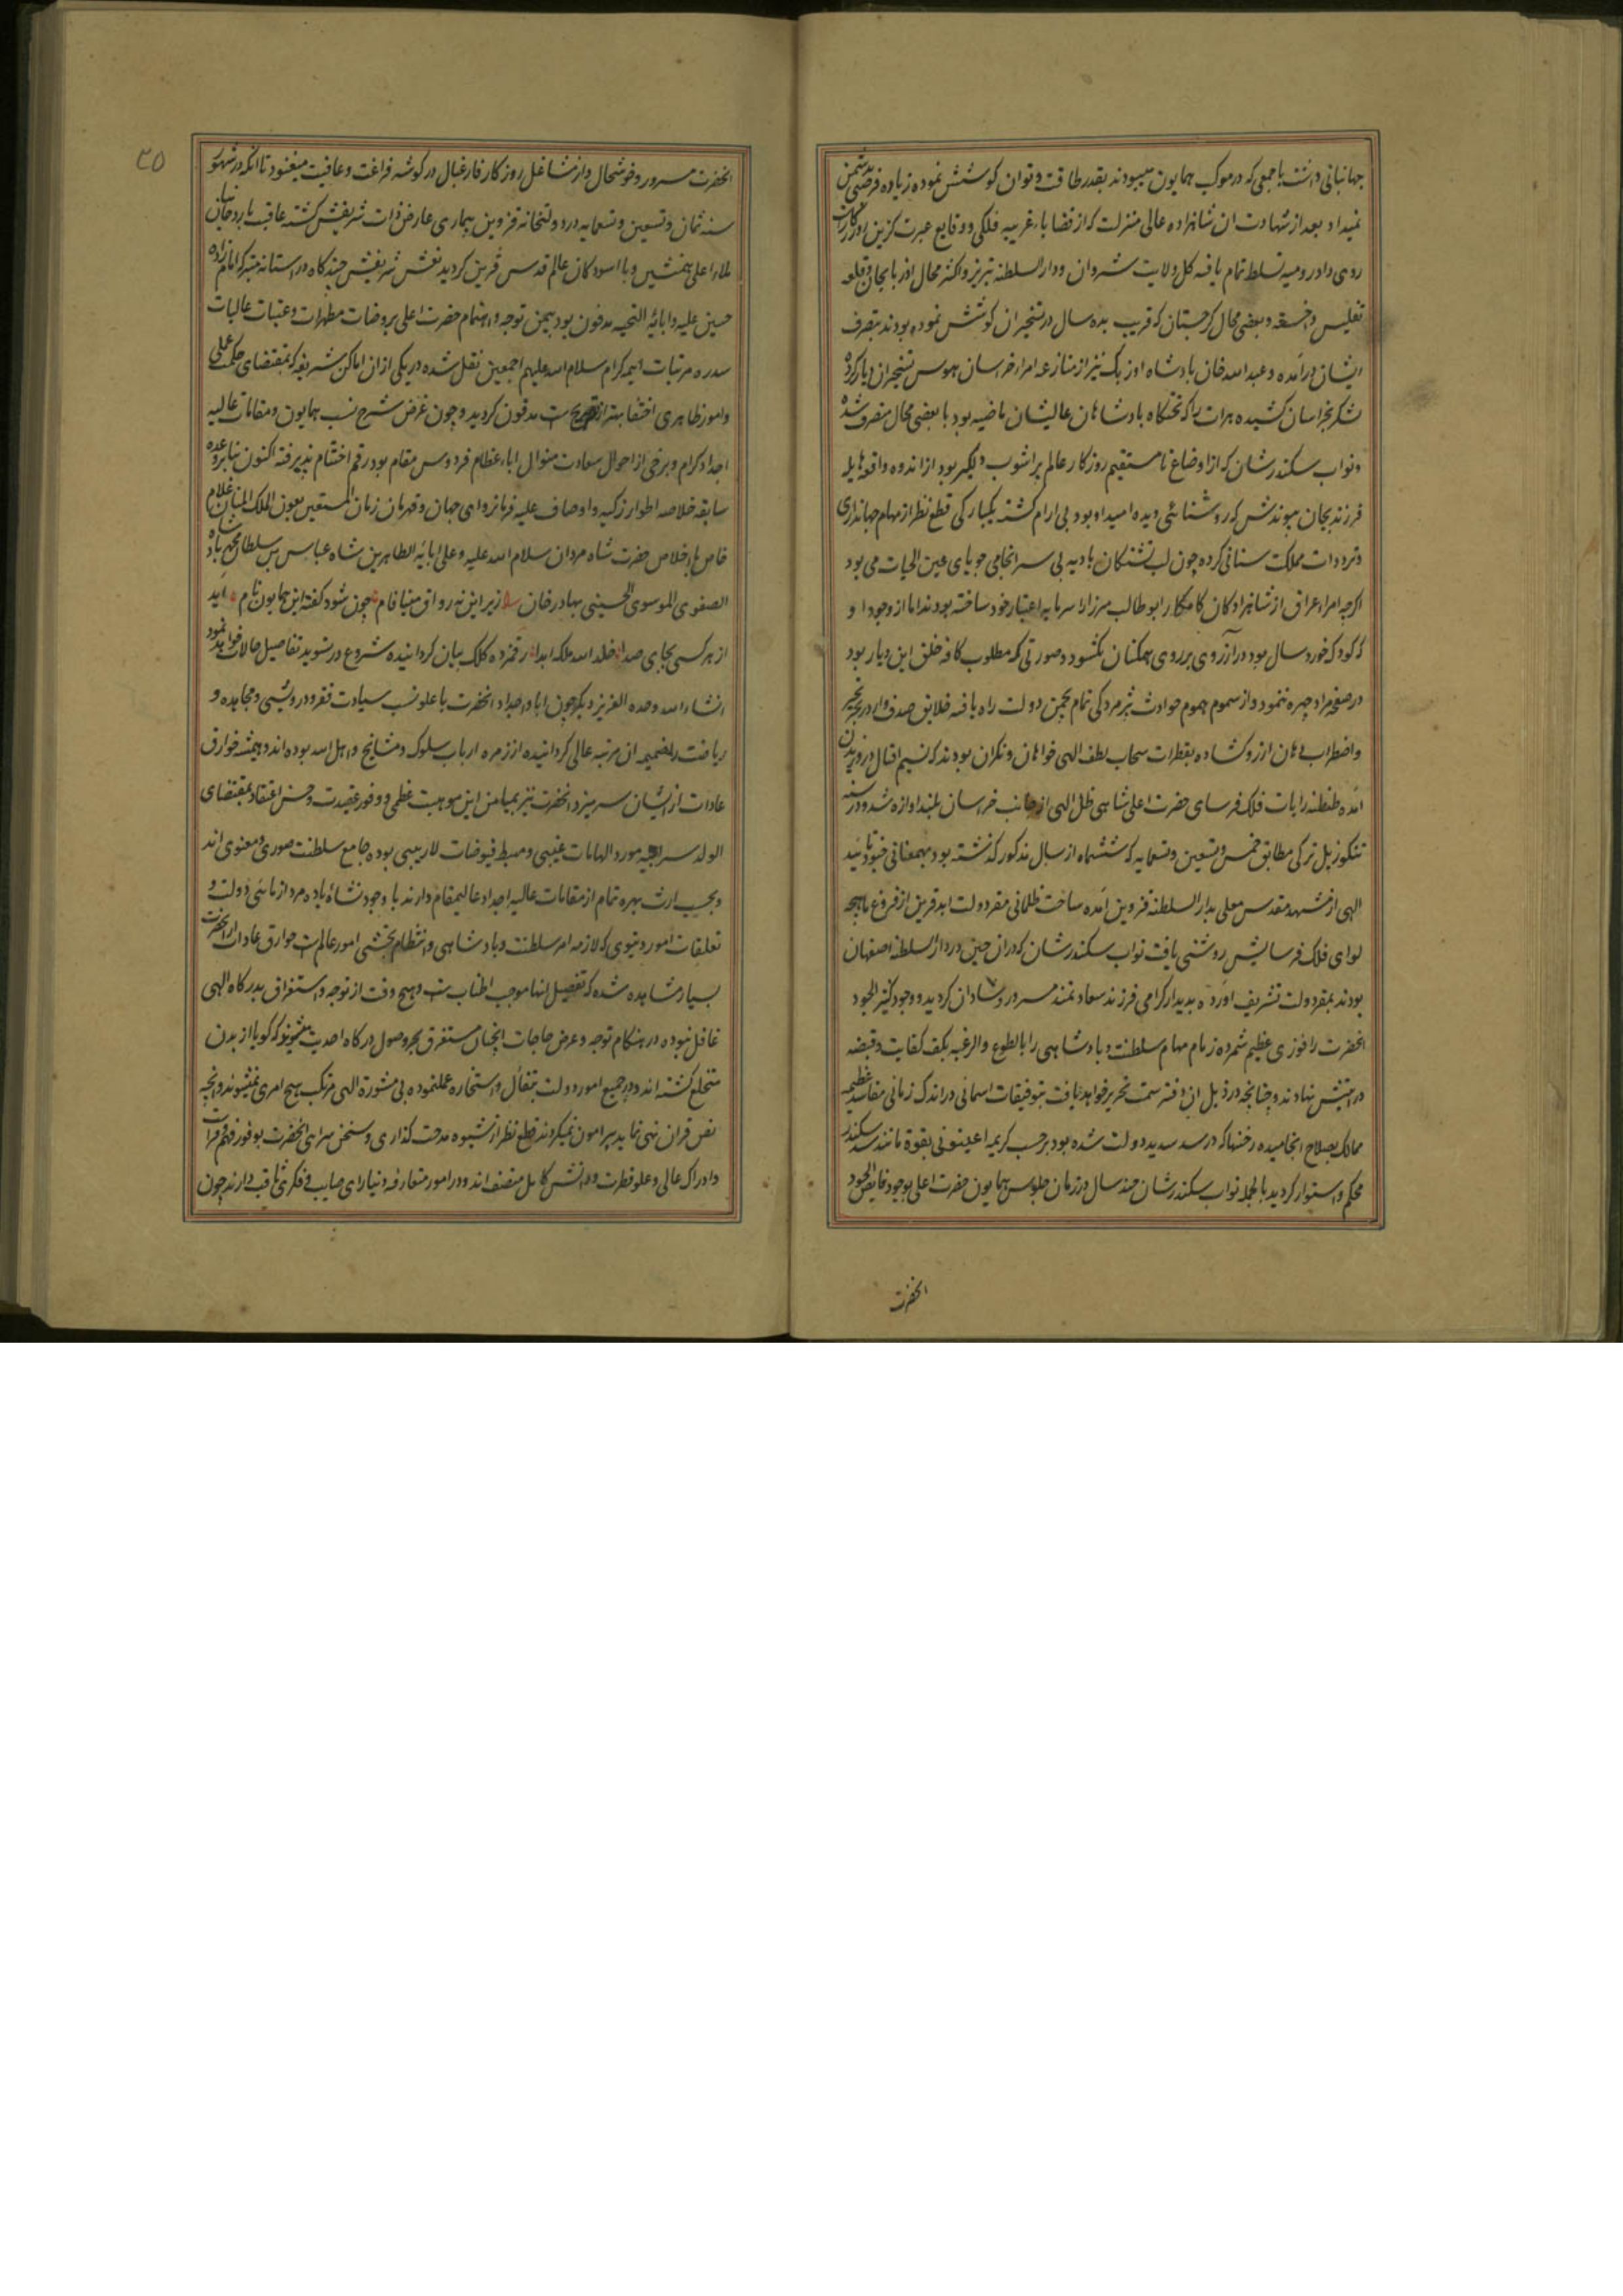 جهانبانی داشت با جمعی که در موکب همایون میبودند بقدر طاقت و توان کوشش نموده زیاده فرصتی بدشمن
نمیداد بعد از شهادت ان شاهزاده عالی منزلت که از قضایاء غریبه فلکی و وقایع عبرت کزین روزکار
روی داد رومیه تسلط تمام یافته کل ولایت شروان و دار السلطنه تبریز و اکثر محال اذربایجان و قلعه
تفلیس و اخسقه و بعضی محال کرجستان که قریب بده سال در تسخیر ان کوشش نموده بودند بتصرف
ایشان درآمده و عبد الله خان پادشاه اوزبک نیز از منازعه امراء خراسان هوس تسخیر ان دیار کرده
لشکر بخراسان کشیده هرات را که تختکاه پادشاهان عالیشان ماضیه بود با بعضی محال متصرف شده
و نواب سکندرشان که از اوضاع نامستقیم روزکار عالم پراشوب دلکیر بود از اندوه واقعه هایله
فرزند بجان پیوندش که روشنائی دیده امید او بود بی ارام کشته یکبارکی قطع نظر از مهام جهانداری
و ترددات مملکت ستانی کرده چون لب تشنکان بادیه بی سرانجامی جویای عین الحیات می بود
اکرچه امراء عراق از شاهزادکان کامکار ابو طالب میرزا را سرمایه اعتبار خود ساخته بودند اما از وجود او
که کودک خورد سال بود در آرزوی بر روی همکنان نکشود و صورتی که مطلوب کافه خلق این دیار بود
در صفحه مراد چهره ننمود و از سموم هموم حوادث پژمردکی تمام بچمن دولت راه یافته خلایق صدف وار در بحر تحیر
و اضطراب دهان ارزو کشاده بقطرات سحاب لطف الهی خواهان و نکران بودند که نسیم اقبال در وزیدن
امده طنطنه رایات فلک فرسای حضرت اعلی شاهی ظل الهی از جانب خراسان بلند اوازه شد و در سنه
تنکوز ئیل ترکی مطابق خمس و تسعین و تسعمایه که ششماه از سال مذکور کذشته بود بهمعنانی جنود تائید
الهی از مشهد مقدس معلی بدار السلطنه قزوین آمده ساحت ظلمانی مقر دولت ابد قرین از فروغ ماهچه
لوای فلک فرسایش روشنی یافت نواب سکندرشان که در ان حین در دار السلطنه اصفهان
بودند بمقر دولت تشریف اورده بدیدار کرامی فرزند سعادتمند مسرور و شادان کردید و وجود کثیر الجود
انحضرت را فوزی عظیم شمرده زمام مهام سلطنت و پادشاهی را بالطوع و الرغبه بکف کفایت و قبضه
درایتش نهادند و چنانچه در ذیل ان دفتر سمت تحریر خواهد یافت بتوفیقات اسمانی در اندک زمانی مفاسد عظیمه
ممالک بصلاح انجامیده رخنها که در سد سدید دولت شده بود بر حسب کریمه اعینونی بقوة مانند سد سکندر
محکم و استوار کردید بالجمله نواب سکندرشان چند سال در زمان جلوس همایون حضرت اعلی بوجود فایض الجود
انحضرت
۳۵
انحضرت مسرور و خوشحال و از مشاغل روزکار فارغبال در کوشه فراغت و عافیت میغنود تا انکه در شهور
سنه ثمان و تسعین و تسعمایه در دولتخانه قزوین بیماری عارض ذات شریفش کشته عاقبت با روحانیان
ملاء اعلی همنشین و با اسودکان عالم قدس قرین کردید نعش شریفش چندکاه در استانه متبرکه امامزاده
حسین علیه و ابائه التحیه مدفون بود بیمن توجه و اهتمام حضرت اعلی بروضات مطهرات و عتبات عالیات
سدره مرتبات ایمه کرام سلام الله علیهم اجمعین نقل شده در یکی از ان اماکن شریفه که بمقتضای حکمت عملی
و امور ظاهری اختفا به از تصریحست مدفون کردید و چون غرض شرح نسب همایون و مقامات عالیه
اجداد کرام و برخی از احوال سعادت منوال اباء عظام فردوس مقام بود رقم اختتام پذیرفته اکنون بنابر وعده
سابقه خلاصه اطوار زکیه و اوصاف علیه فرمانروای جهان و قهرمان زمان المستعین بعون الملک المنان غلام
خاص با اخلاص حضرت شاه مردان سلام الله علیه و علی ابائه الطاهرین شاه عباس بن سلطان محمد پادشاه
الصفوی الموسوی الحسینی بهادر خان زیر این نه رواق مینا فام چون شود کفته این همایون نام اید
از هر کسی بجای صدا خلد الله ملکه ابدا رقمزده کلک بیان کردانیده شروع در تسوید تفاصیل حالات خواهد نمود
انشاء الله وحده العزیز دیکر چون اباء و اجداد انحضرت با علو نسب سیادت فقر و درویشی و مجاهده و
ریاضت را ضمیمه ان مرتبه عالی کردانیده از زمره ارباب سلوک و مشایخ و اهل الله بوده اند و همیشه خوارق
عادات از ایشان سر میزد انحضرت نیز بمیامن این موهبت عظمی و وفور عقیدت و حسن اعتقاد بمقتضای
الولد سر ابیه مورد الهامات غیبی و مهبط فیوضات لاریبی بوده جامع سلطنت صوری و معنوی اند
و بحسب ارث بهره تمام از مقامات عالیه اجداد عالیمقام دارند با وجود نشاءه باده مردازمائی دولت و
تعلقات امور دنیوی که لازمه امر سلطنت و پادشاهی و انتظام بخشی امور عالمست خوارق عادات از انحضرت
بسیار مشاهده شده که تفصیل انها موجب اطناب است و هیچ وقت از توجه و استغراق بدرکاه الهی
غافل نبوده در هنکام توجه و عرض حاجات انچنان مستغرق بحر وصول درکاه احدیت میشوند که کویا از بدن
منخلع کشته اند و در جمیع امور دولت بتفأل و استخاره عملنموده بی مشورة الهی مرتکب هیچ امری نمیشوند و انچه
نص قران نهی نماید پیرامون نمیکردند قطع نظر از شیوه مدحت کذاری و سخن سرائی انحضرت بوفور فهم و فراست
و ادراک عالی و علو فطرت و دانش کامل متصف اند و در امور متعارفه دنیا رای صایب و فکری ثاقب دارند چون